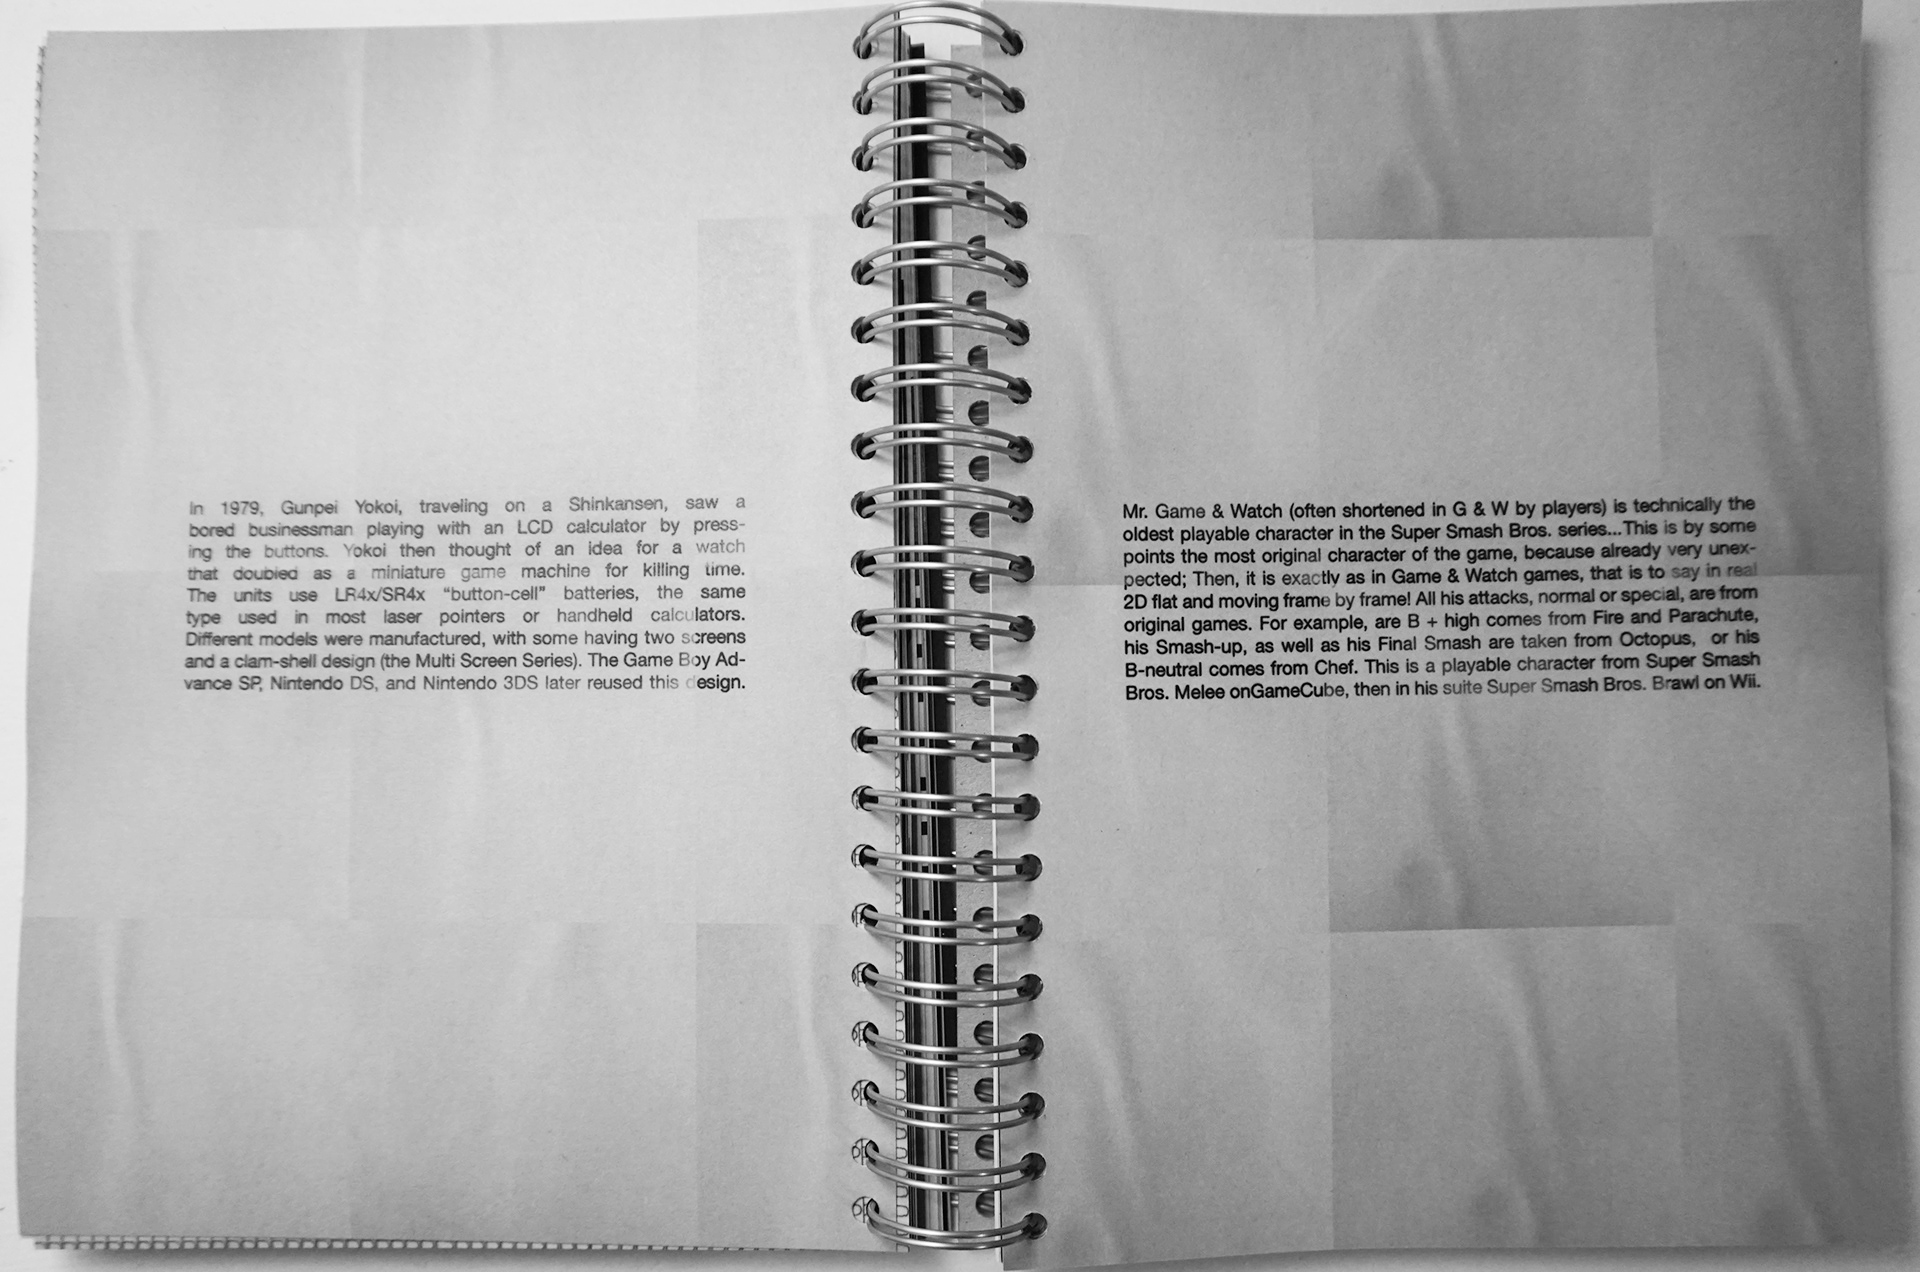 In 1979, Gunpei Yokoi, traveling on a Shinkansen, saw a
bored businessman playing with an LCD calculator by press-
ing the buttons. Yokoi then thought of an idea for a watch
that doubled as a miniature game machine for killing time.
The units use LR4x/SR4x “button-cell” batteries, the same
type used in most laser pointers or handheld calculators.
Different models were manufactured, with some having two screens
and a clam-shell design (the Multi Screen Series). The Game Boy Ad-
vance SP, Nintendo DS, and Nintendo 3DS later reused this design.
Mr. Game & Watch (often shortened in G & W by players) is technically the
oldest playable character in the Super Smash Bros. series...This is by some
points the most original character of the game, because already very unex-
pected; Then, it is exactly as in Game & Watch games, that is to say in real
2D flat and moving frame by frame! All his attacks, normal or special, are from
original games. For example, are B + high comes from Fire and Parachute,
his Smash-up, as well as his Final Smash are taken from Octopus, or his
B-neutral comes from Chef. This is a playable character from Super Smash
Bros. Melee onGameCube, then in his suite Super Smash Bros. Brawl on Wii.